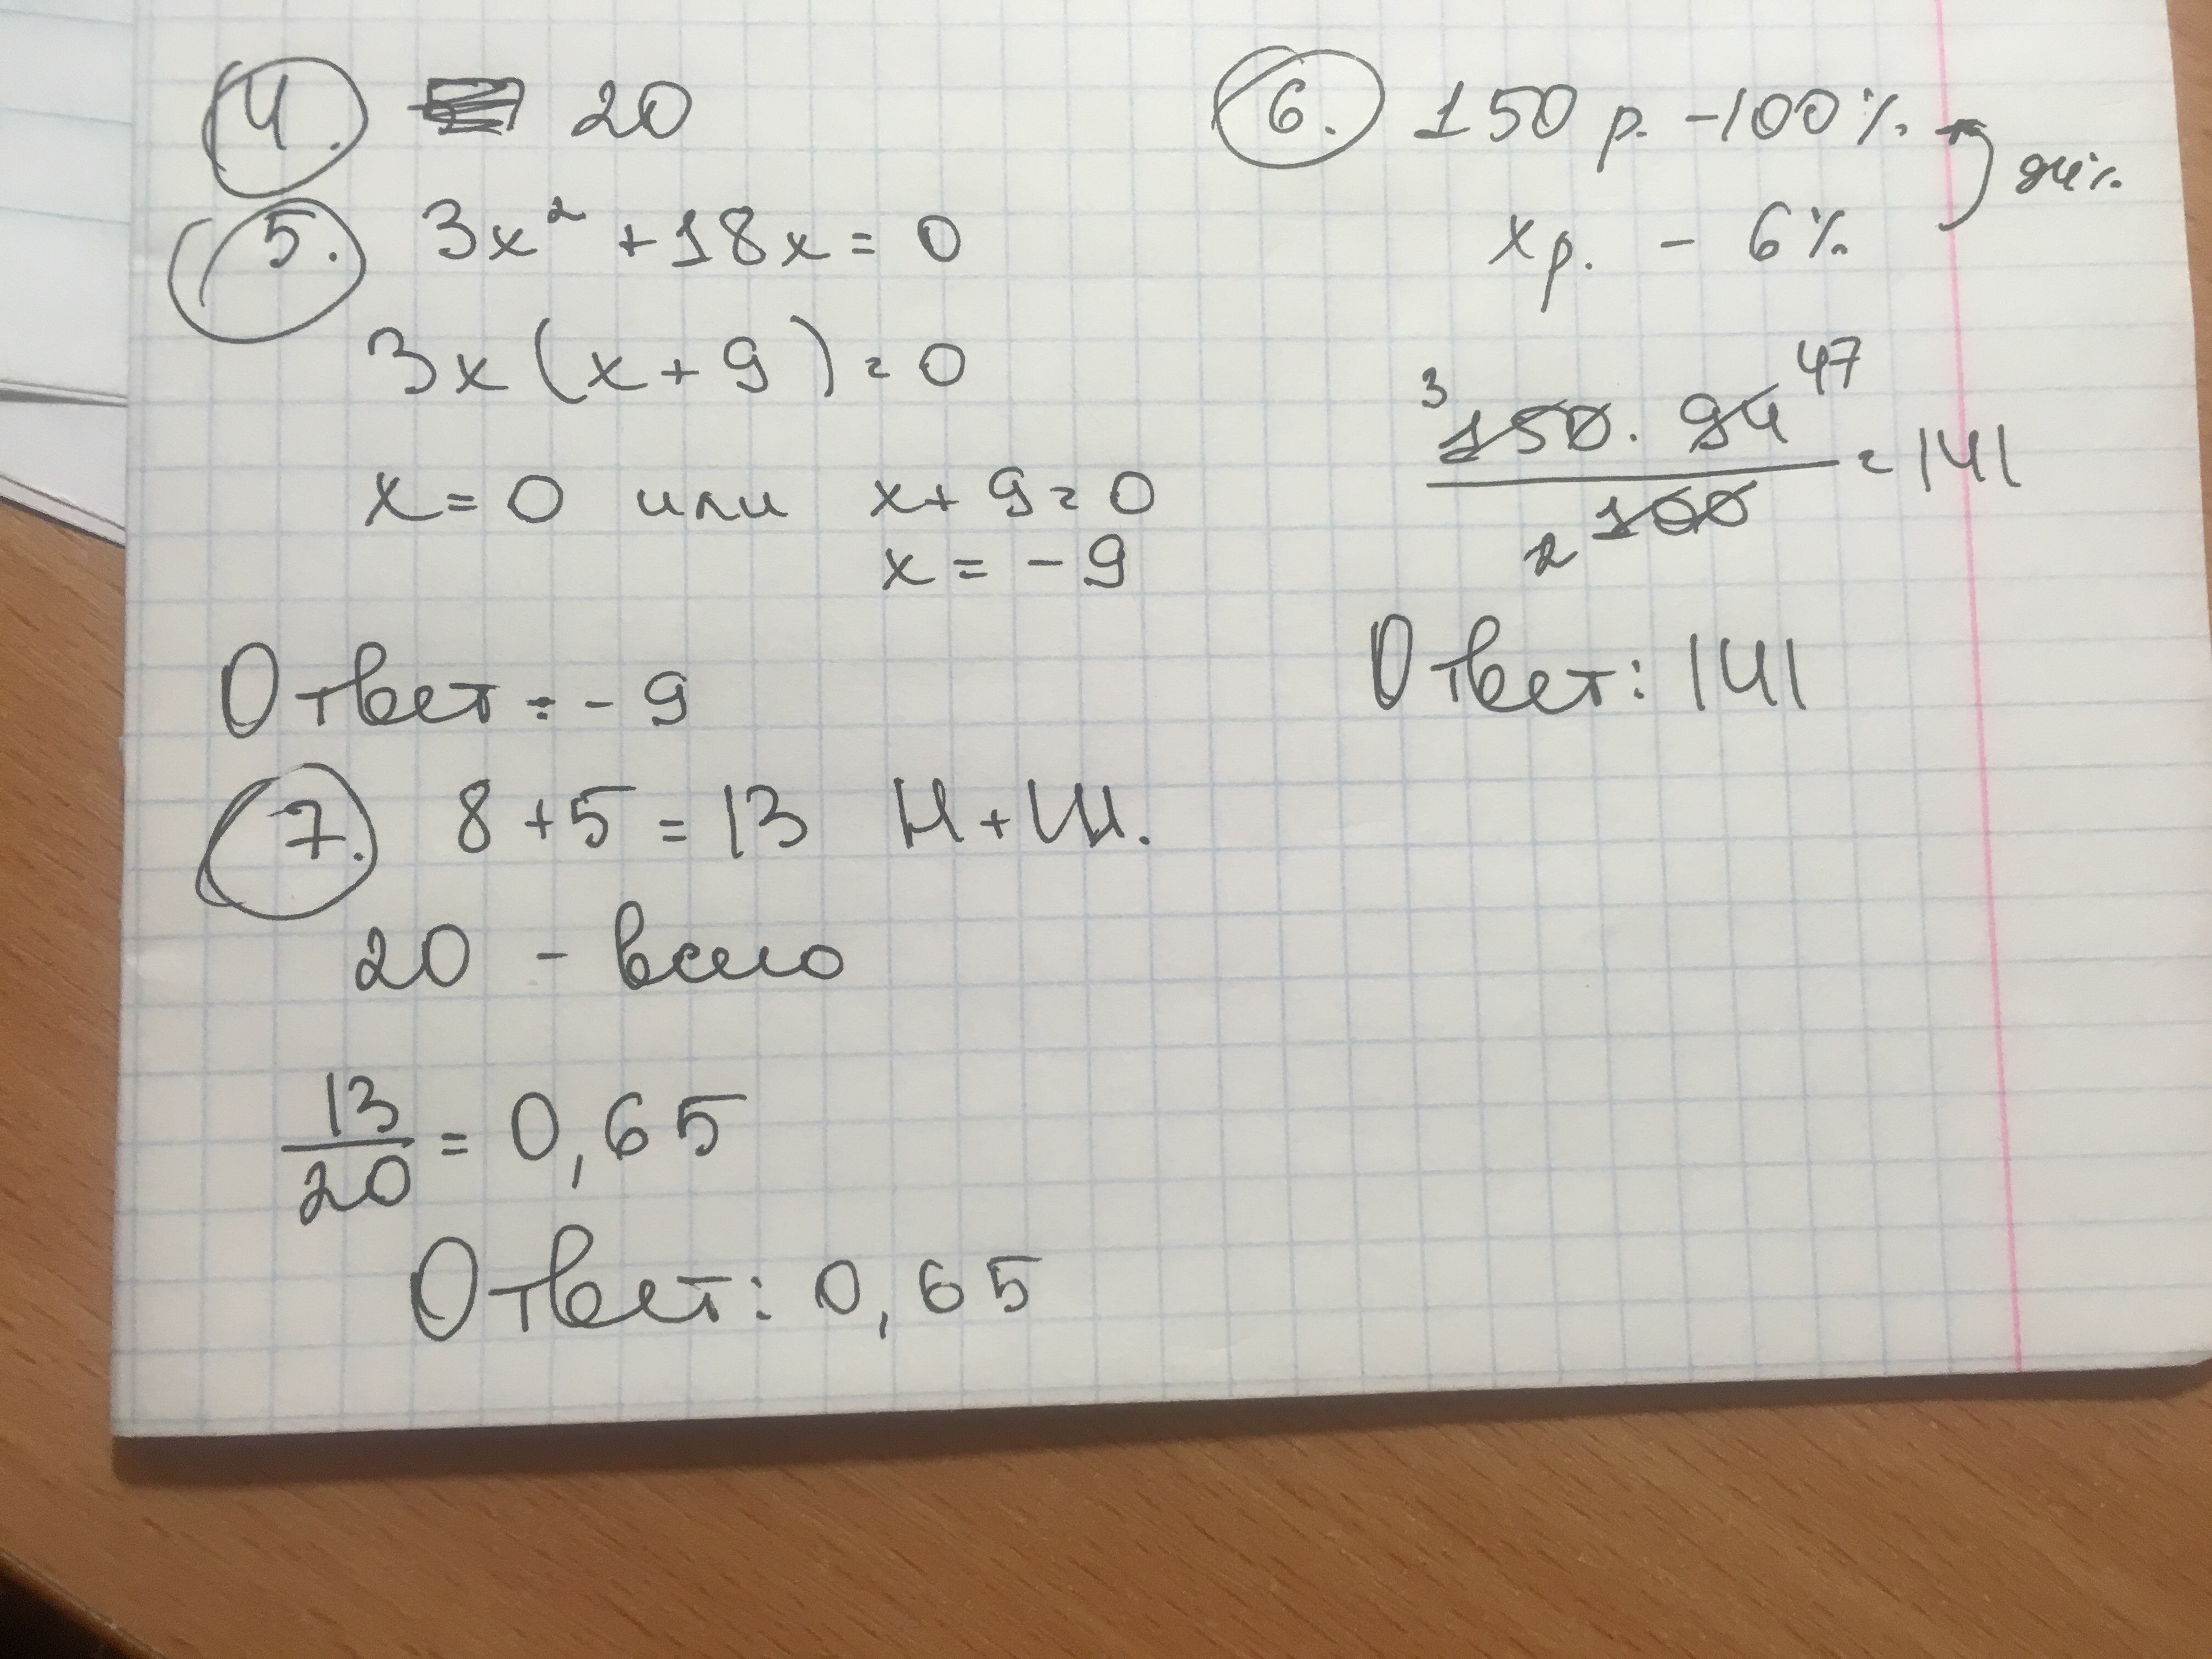 4. 20
5. 3x² + 18x = 0
3x (x + 9) = 0
x = 0 или x + 9 = 0
x = - 9
Ответ: - 9
6. 150 р. - 100% 94%
x р. - 6%
3 150 · 94 47
2 100
= 141
Ответ: 141
7. 8 + 5 = 13 Н + Ш.
20 - всего
13
20
= 0,65
Ответ: 0,65